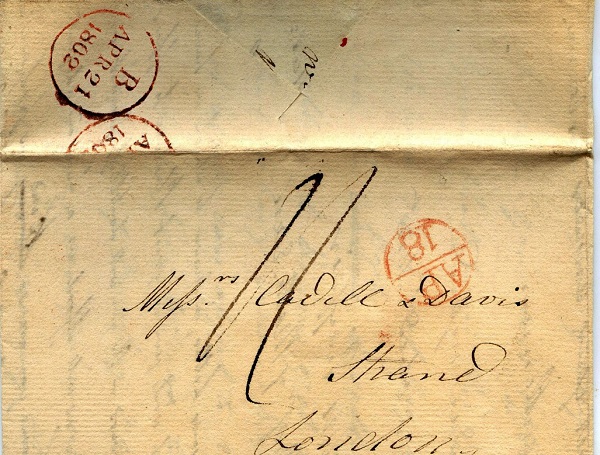 B
APR 21
1802
A
180
AP
18
11
Messrs. Cadell & Davis
Strand
London